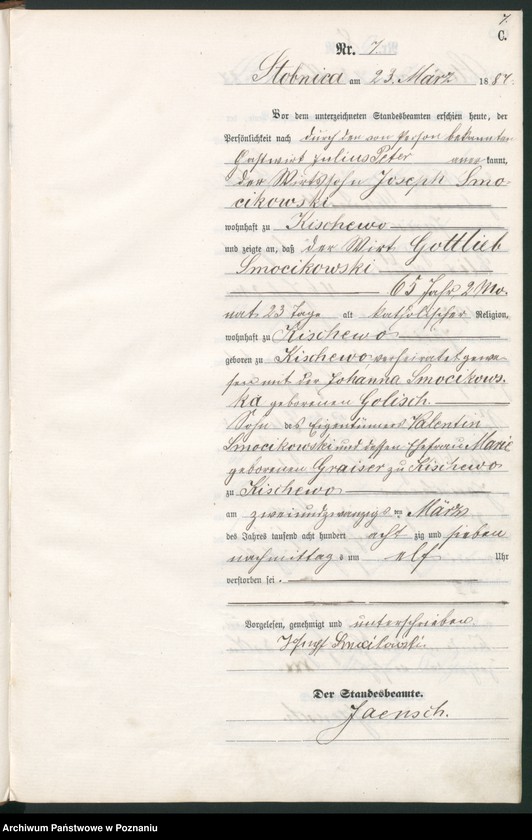 7.
C.
Nr. 7
Stobnica am 23. März 1887.
Vor dem unterzeichneten Standesbeamten erschien heute, der
Persönlichkeit nach durch den von Person bekannten
Gastwirt Julius Peter anerkannt,
der Wirtssohn Joseph Smo-
cikowski
wohnhaft zu Kischewo
und zeigte an, daß der Wirt Gottlieb
Smocikowski
65 Jahr 2 Mo-
nat 23 Tage alt katholischer Religion,
wohnhaft zu Kischewo
geboren zu Kischewo verheiratet gewe-
sen mit der Johanna Smocikows-
ka geborenen Golisch
Sohn des Eigentümers Valentin
Smocikowski und dessen Ehefrau Marie
geborenen Graiser zu Kischewo
zu Kischewo
am zweiundzwanzigsten März
des Jahres tausend acht hundert achtzig und sieben
nachmittags um elf Uhr
verstorben sei.
Vorgelesen, genehmigt und unterschrieben
Joseph Smocikowski.
Der Standesbeamte.
Jaensch.
Archiwum Państwowe w Poznaniu